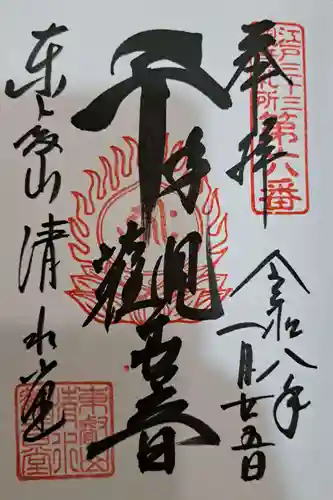 奉拝
江戸三十三
観音札所
第六番
令和八年
一月廿五日
千手観世音
東叡山清水堂
東叡山
清水
観音堂